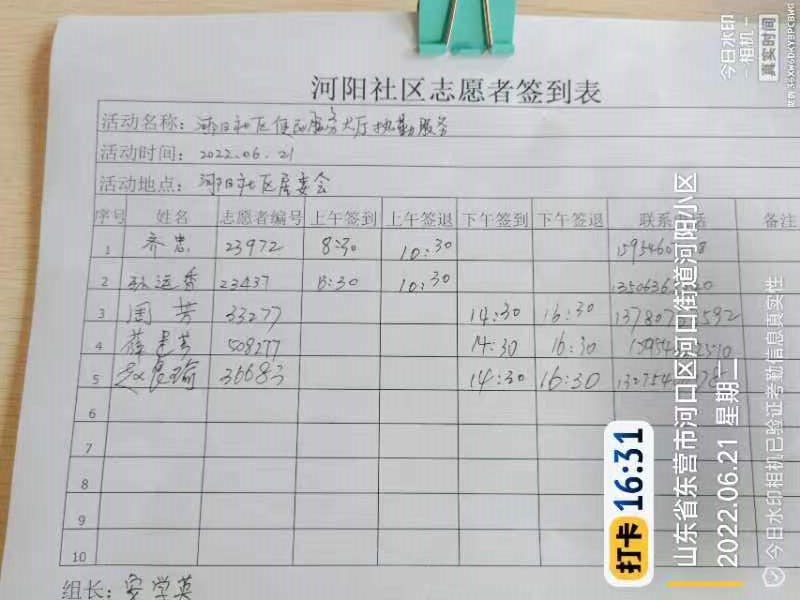 河阳社区志愿者签到表
活动名称：河阳社区便民服务大厅执勤服务
活动时间：2022.06.21
活动地点：河阳社区居委会
序号 姓名 志愿者编号 上午签到 上午签退 下午签到 下午签退 联系 话 备注
1 齐忠 23972 8:30 10:30
2 孙运香 23437 8:30 10:30
3 周芳 33277 14:30 16:30
4 薛建芳 508277 14:30 16:30
5 36683 14:30 16:30
6
7
8
9
10
组长：安学英
打卡 16:31
山东省东营市河口区河口街道河阳小区
2022.06.21 星期二
今日水印相机已验证考勤信息真实性
今日水印
相机
真实时间